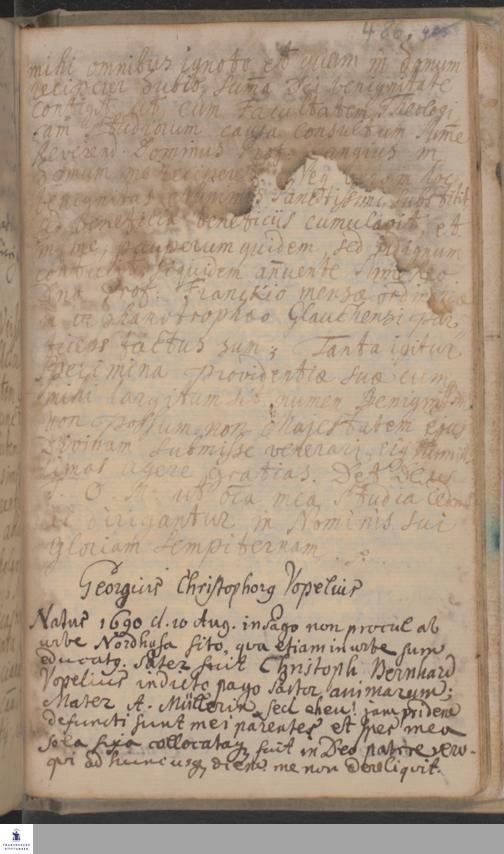 480. 485
mihi omnibus ignoto, est quam in domum
recipier subito, suma Dei benignitate
contigit, ut cum Facultatem Theologi
cam studiorum causa consultum
Reverend. Dominus Prof. Langius in
domum me reciperet
benignitas
beneficia beneficiis cumulavit, et
in me, pauperum quidem, sed indignum
siquidem annuente
Dno Prof. Franckio mensae ordinariae
in orphanotrophaeo Glauchensi par
ticeps factus sum; Tanta igitur
Specimina Providentiae suae cum
mihi largitum sit numen Benigniss
non possum non Majestatem ejus
Divinam submisse venerari, eiq humil
limas agere gratias. Det Deus
T. O. M. ut oia mea studia
dirigantur in Nominis sui
Gloriam sempiternam
Georgius Christophorg Vopelius
Natus 1690 d. 10 Aug. in pago non procul ab
urbe Nordhusa sito, qva etiam in urbe sum
educatg. Pater fuit Christoph. Bernhard
Vopelius in dicto pago Pastor animarum;
Mater A. Müllerin, sed eheu! jam pridem
defuncti sunt mei parentes et spes mea
sola fixa collocataq fuit in Deo patre vero
qvi ad huncusq diem me non dereliqvit.
FRANCKESCHE STIFTUNGEN